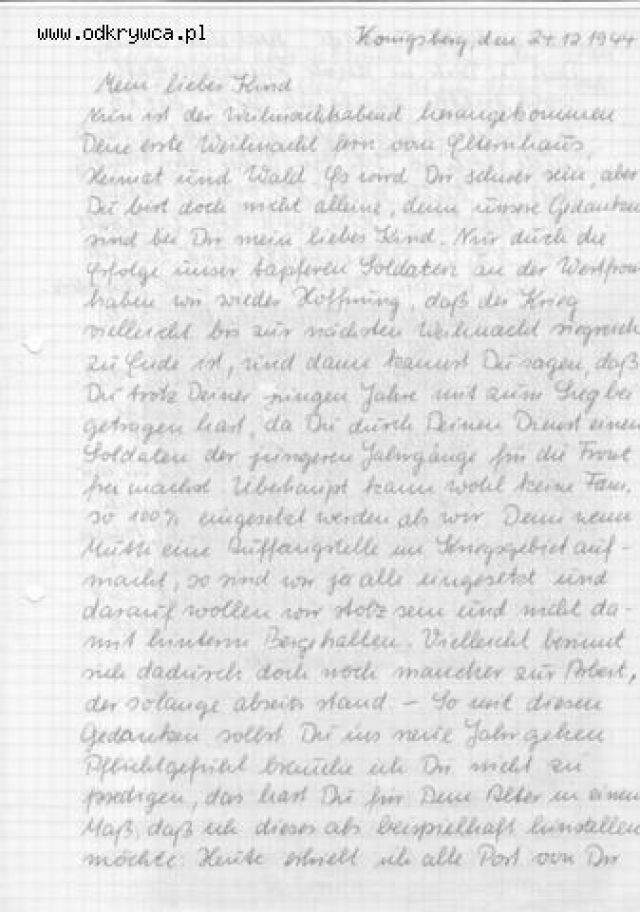 www.odkrywca.pl
Königsberg, den 24.12.1944
Mein liebes Kind
Nun ist der Weihnachtsabend herangekommen
Deine erste Weihnacht fern vom Elternhaus,
Heimat und Wald. Es wird Dir schwer sein, aber
Du bist doch nicht alleine, denn unsere Gedanken
sind bei Dir mein liebes Kind. Nur durch die
Erfolge unser tapferen Soldaten an der Westfron
haben wir wieder Hoffnung, daß der Krieg
vielleicht bis zur nächsten Weihnacht siegreich
zu Ende ist, und dann kannst Du sagen, daß
Du trotz Deiner jungen Jahre mit zum Sieg bei
getragen hast, da Du durch Deinen Dienst einen
Soldaten der jüngeren Jahrgänge für die Front
frei machst. Überhaupt kann wohl keine Fam.
so 100% eingesetzt werden als wir. Denn wenn
Mutti eine Auffangstelle im Kriegsgebiet auf-
macht, so sind wir ja alle eingesetzt und
darauf wollen wir stolz sein und nicht da-
mit hinterm Berge halten. Vielleicht
sich dadurch doch noch mancher zur Arbeit,
der solange abseits stand. – So mit diesen
Gedanken sollst Du ins neue Jahr gehen
Pflichtgefühl brauche ich Dir nicht zu
predigen, das hast Du für Dein Alter in einem
Maß, daß ich dieses als beispielhaft hinstellen
möchte. Heute erhielt ich alle Post von Dir